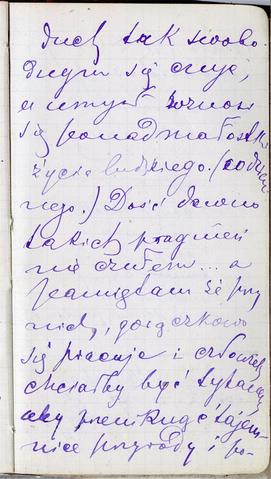 duch tak swobo
dnym się czuje,
a umysł wznosi
się ponad małostki
życia ludzkiego. (codzien
nego.) Dość dawno
takich pragnień
nie czułem... a
pamiętam że przy
nich, gorączkowo
się pracuje i człowiek
chciałby być
aby przeniknąć tajem-
nice przyrody i po-